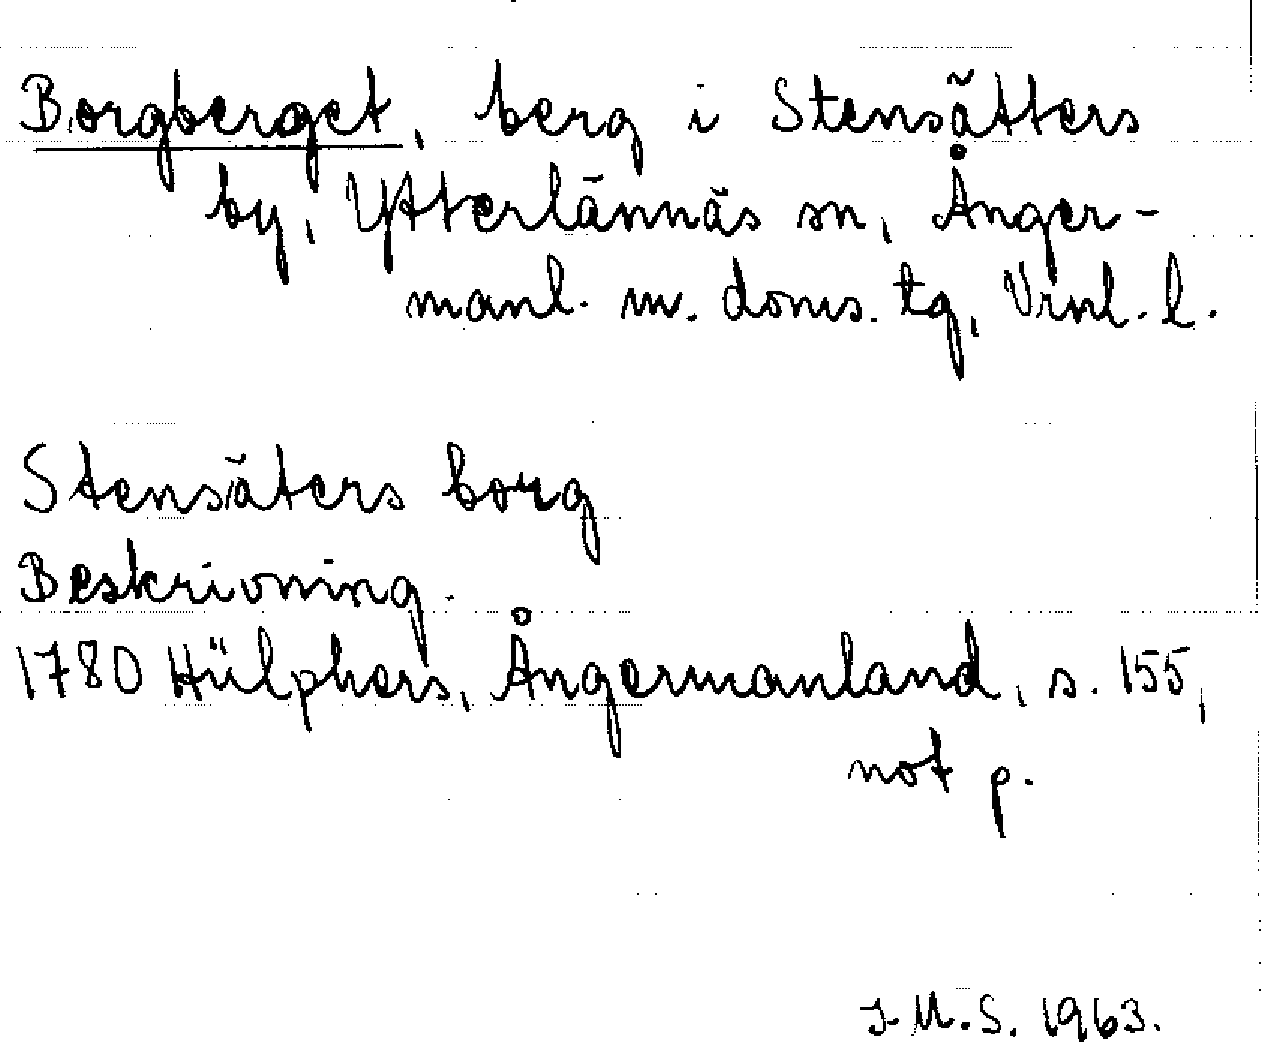 Borgberget, berg i Stensätters
by, Ytterlännäs sn, Ånger-
manl. m. doms. tg, Vrnl. l.
Stensäters borg
Beskrivning.
1780 Hülphers, Ångermanland, s. 155,
not p.
J. M. S. 1963.